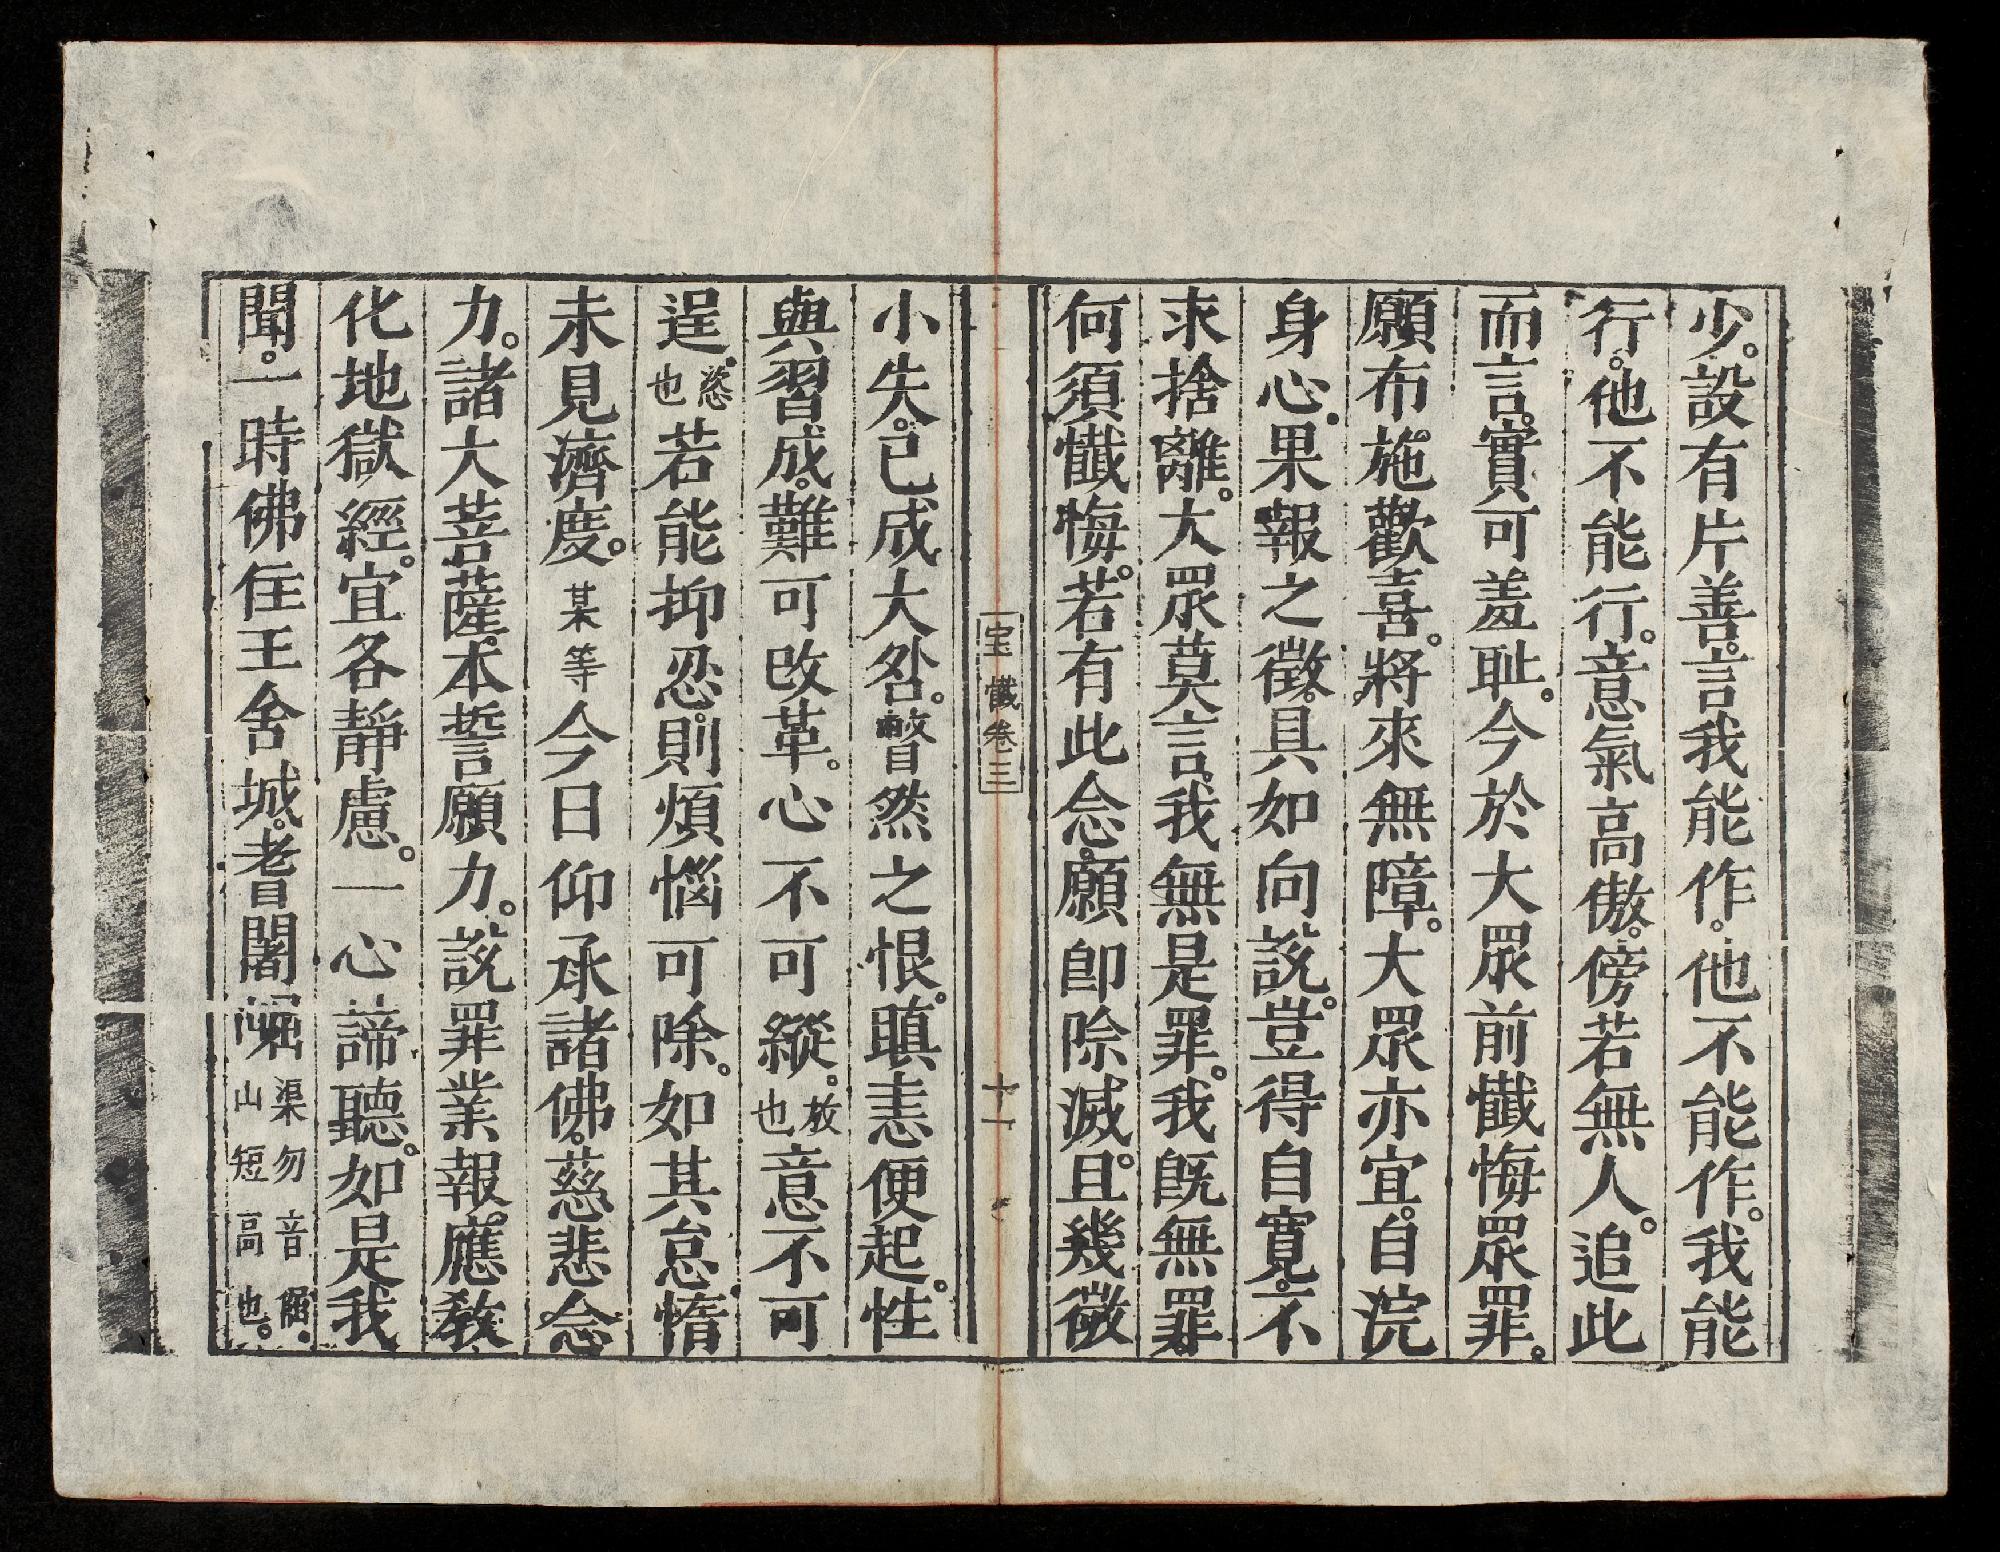 少。設有片善。言我能作。他不能作。我能
行。他不能行。意氣高傲。傍若無人。追此
而言。實可羞耻。今於大眾前懺悔眾罪。
願布施歡喜。將來無障。大眾亦宜。自浣
身心。果報之徵。具如向說。豈得自寬。不
求捨離。大眾莫言。我無是罪。我既無罪
何須懺悔。若有此念。願即除滅。且幾微
宝懺卷三 十一
小失。已成大咎。瞥然之恨。瞋恚便起。性
與習成。難可改革。心不可縱。放也意不可
逞。恣也若能抑忍。則煩惱可除。如其怠惰
未見濟度。某等今日仰承諸佛。慈悲念
力。諸大菩薩。本誓願力。說罪業報。應教
化地獄經。宜各靜慮。一心諦聽。如是我
聞。一時佛住王舍城。耆闍崛渠勿音倔。山短高也。